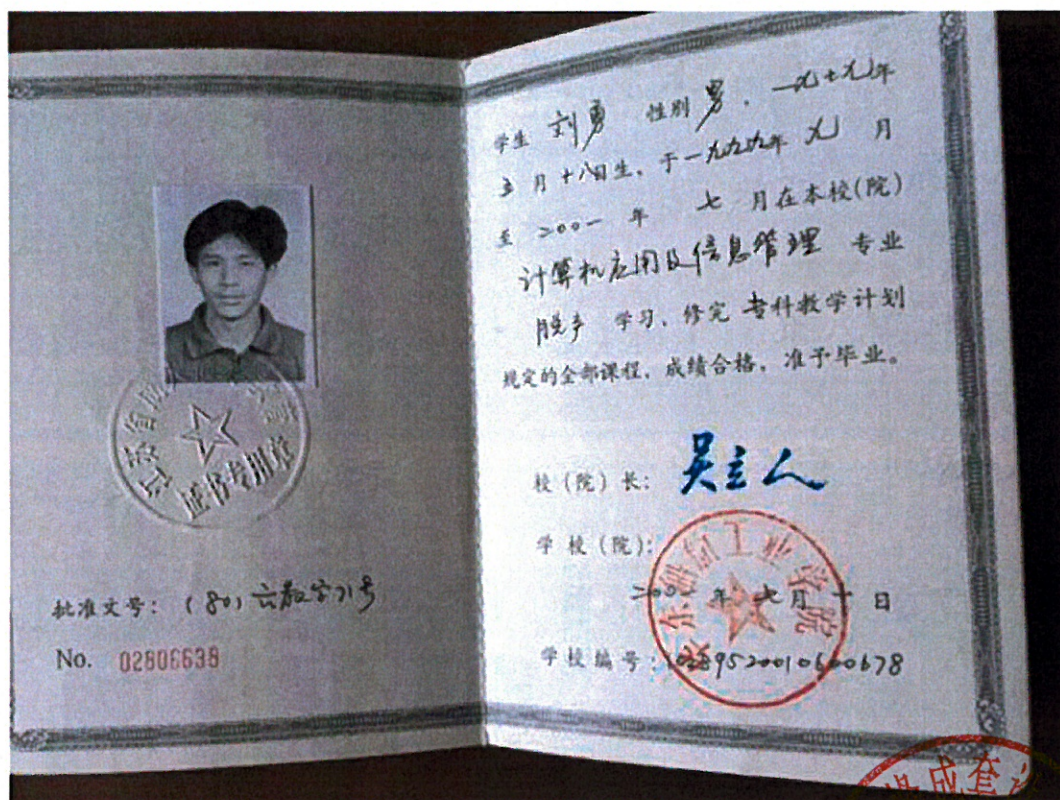 江苏省
证书专用章
批准文号：(80)六教字21号
No. 02806638
学生 刘勇 性别 男，一九七九年
五月十八日生，于一九九九年 九 月
至 二〇〇一 年 七 月在本校(院)
计算机应用及信息管理 专业
脱产 学习，修完 专科教学计划
规定的全部课程，成绩合格，准予毕业。
校（院）长：吴立人
学 校（院）：
华东船舶工业学院
二〇〇一 年 七月 一 日
学校编号：10289520010600678
成套